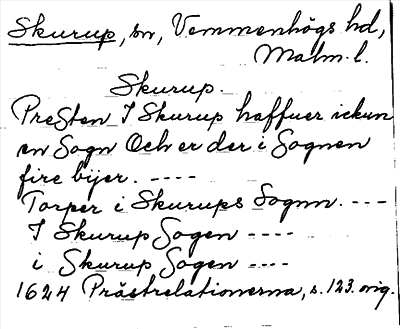 Skurup, sn, Vemmenhögs hd,
Malm. l.
Skurup.
PreSten I Skurup haffuer ickun
en Sogn Och er der i Sognen
fire bÿer. ----
Torper i Skurups Sognn. ---
I Skurup Sogen ----
i Skurup Sogen ----
1624 Prästrelationerna, s. 123. orig.